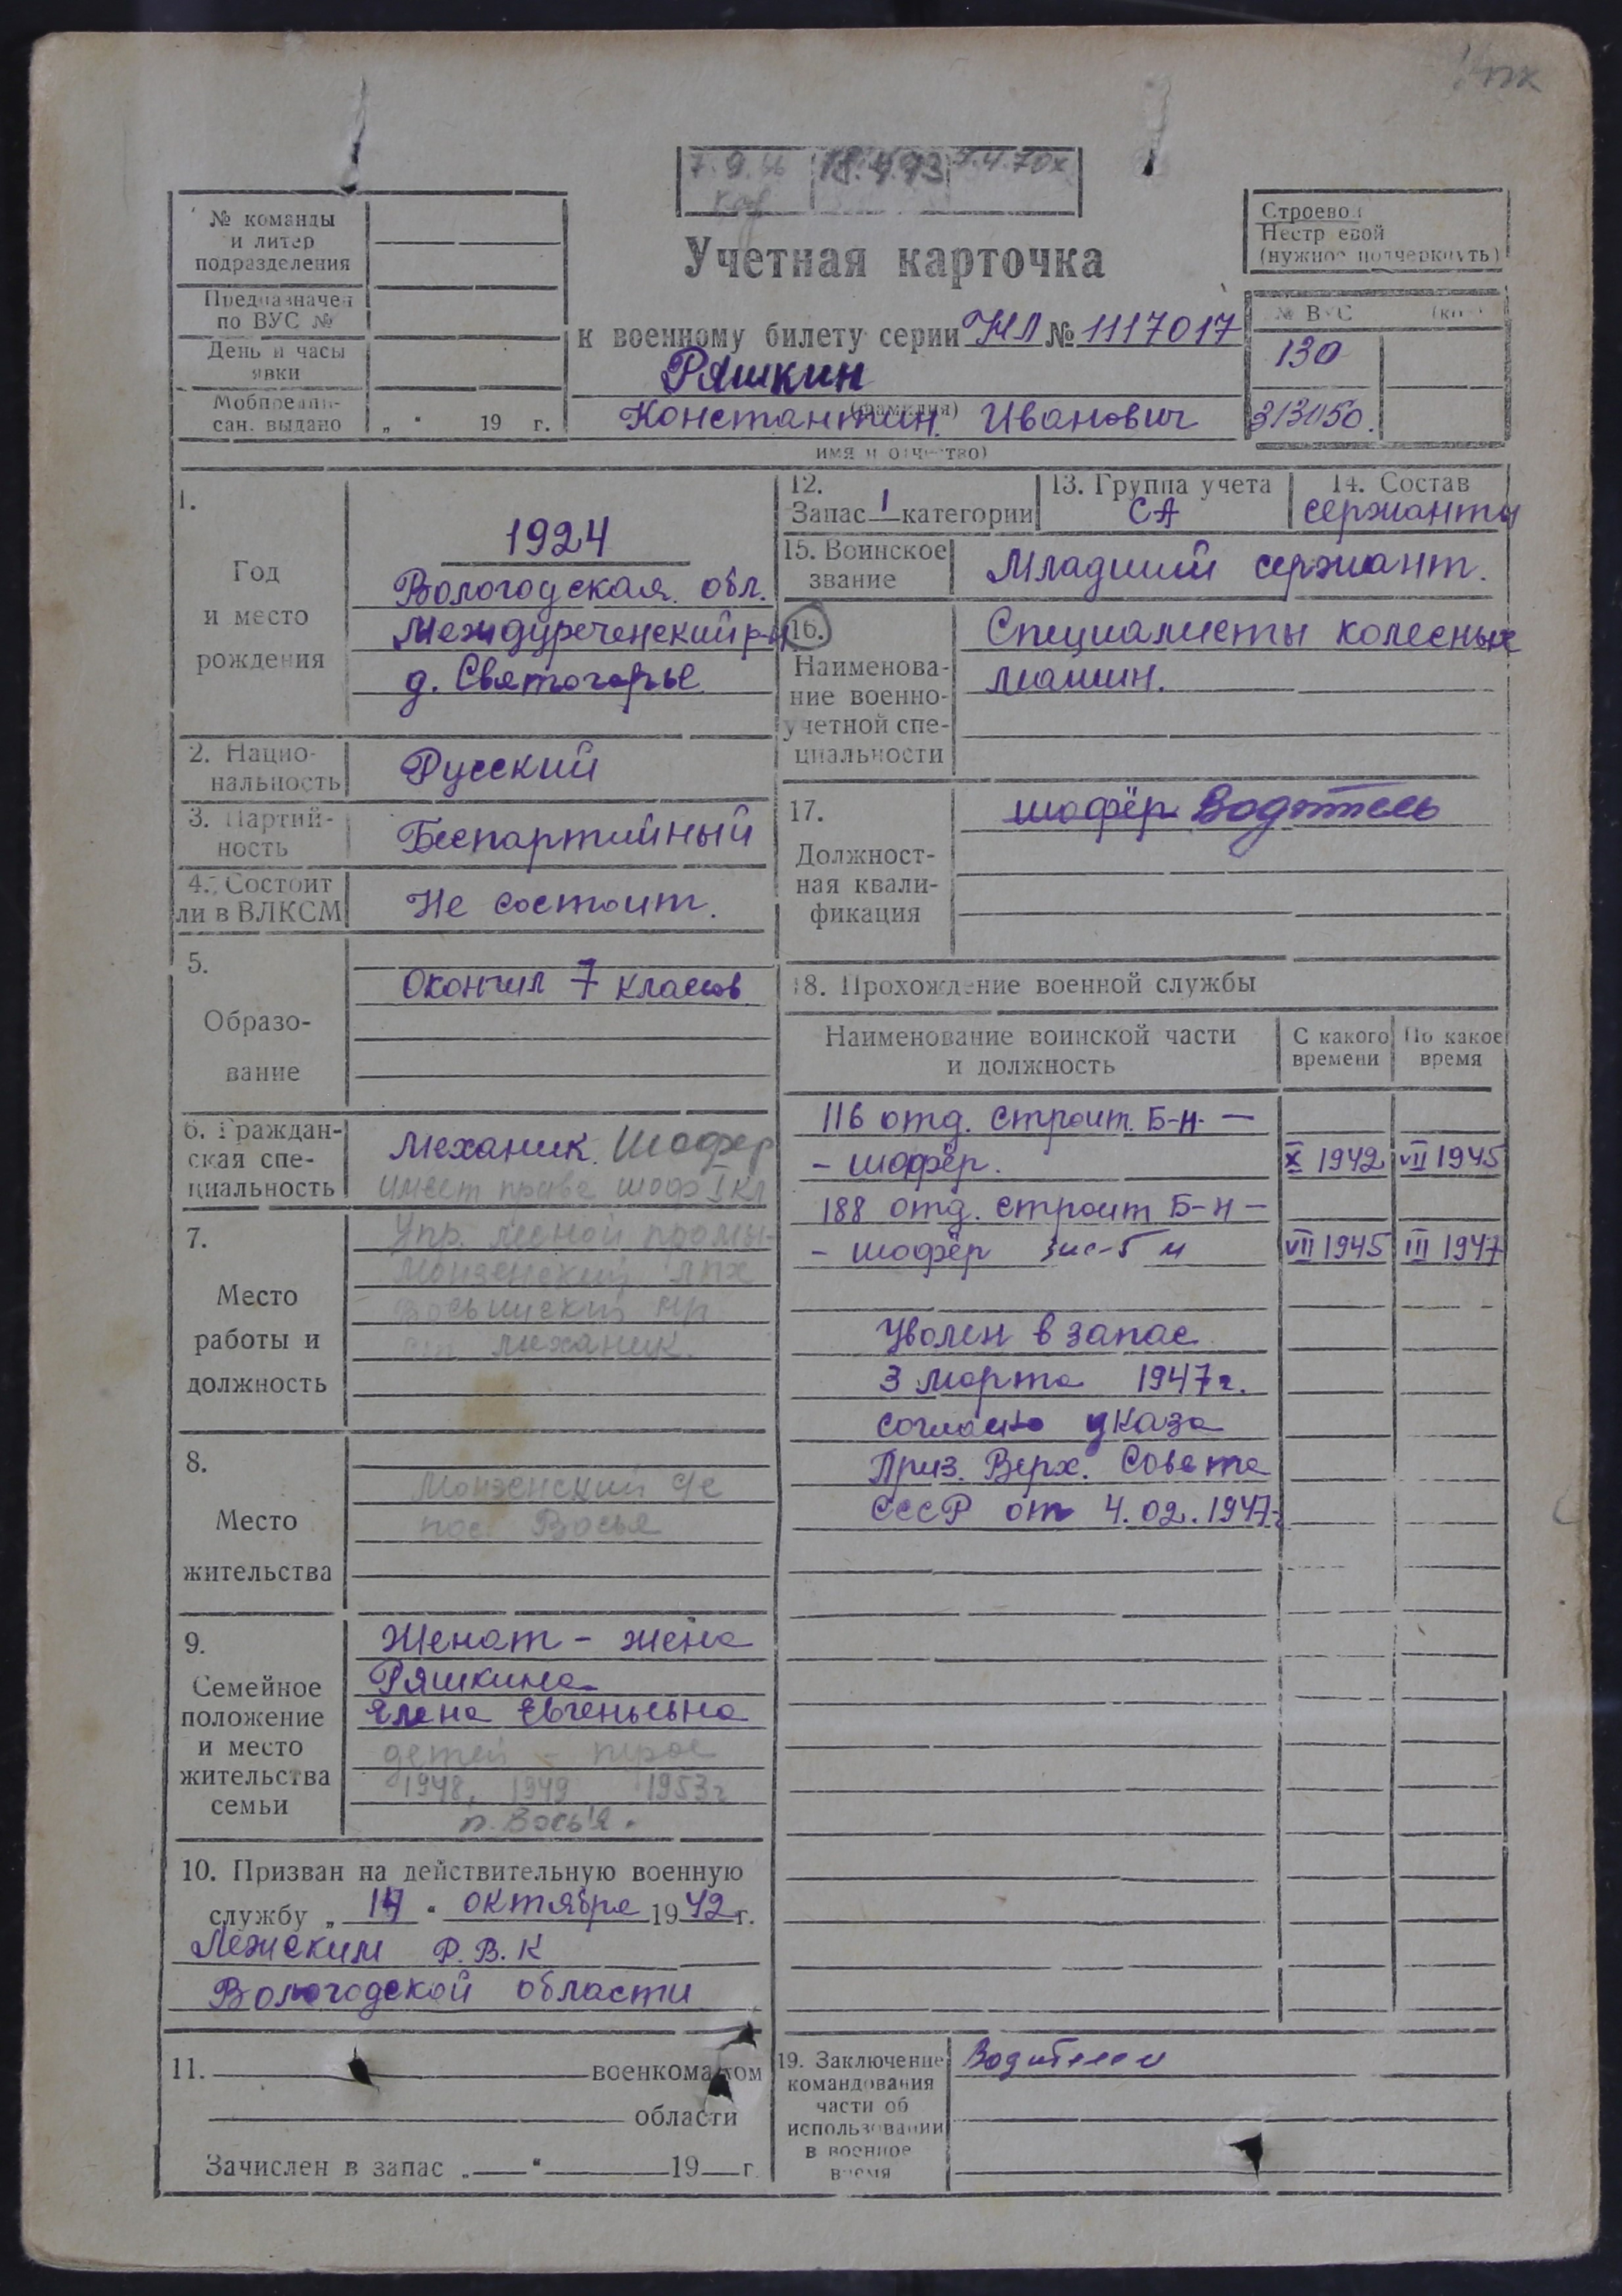 7.9.66 18.4.73 9.4.70
№ команды
и литер
подразделения
Предназначен
по ВУС №
День и часы
явки
Мобпредпи-
сан. выдано „ “ 19 г.
Учетная карточка
к военному билету серии НЛ № 1117017
Ряшкин
(фамилия)
Константин Иванович
имя и отчество)
Строевой
Нестроевой
(нужное подчеркнуть)
№ ВУС
130
313050.
1.
Год
и место
рождения
1924
Вологодская обл.
Междуреченский р-н
д. Святогорье
2. Нацио-
нальность
Русский
3. Партий-
ность
Беспартийный
4. Состоит
ли в ВЛКСМ
Не состоит.
5.
Образо-
вание
Окончил 7 классов
6. Граждан-
ская спе-
циальность
Механик. Шофер
имеет права шоф I кл
7.
Место
работы и
должность
Упр. лесной промы-
Монзенский ЛПХ
механик.
8.
Место
жительства
Монзенский с/с
пос. Восья
9.
Семейное
положение
и место
жительства
семьи
Женат - жена
Ряшкина
Елена Евгеньевна
детей - трое
1948, 1949 1953г
п. Восья.
10. Призван на действительную военную
службу „ 14 “ октября 1942 г.
Лежским Р.В.К
Вологодской области
11. военкоматом
области
Зачислен в запас „ “ 19 г.
12.
Запас 1 категории
13. Группа учета
СА
14. Состав
сержанты
15. Воинское
звание
Младший сержант.
16.
Наименова-
ние военно-
учетной спе-
циальности
Специалисты колесных
машин.
17.
Должност-
ная квали-
фикация
шофёр Водитель
18. Прохождение военной службы
Наименование воинской части
и должность
С какого
времени
По какое
время
116 отд. строит. Б-н. —
- шофёр. X 1942 VII 1945
188 отд. строит Б-н —
- шофёр зис-5 м VII 1945 III 1947
Уволен в запас
3 марта 1947г.
согласно указа
През. Верх. Совета
СССР от 4.02.1947г
19. Заключение
командования
части об
использовании
в военное
время
Водителем